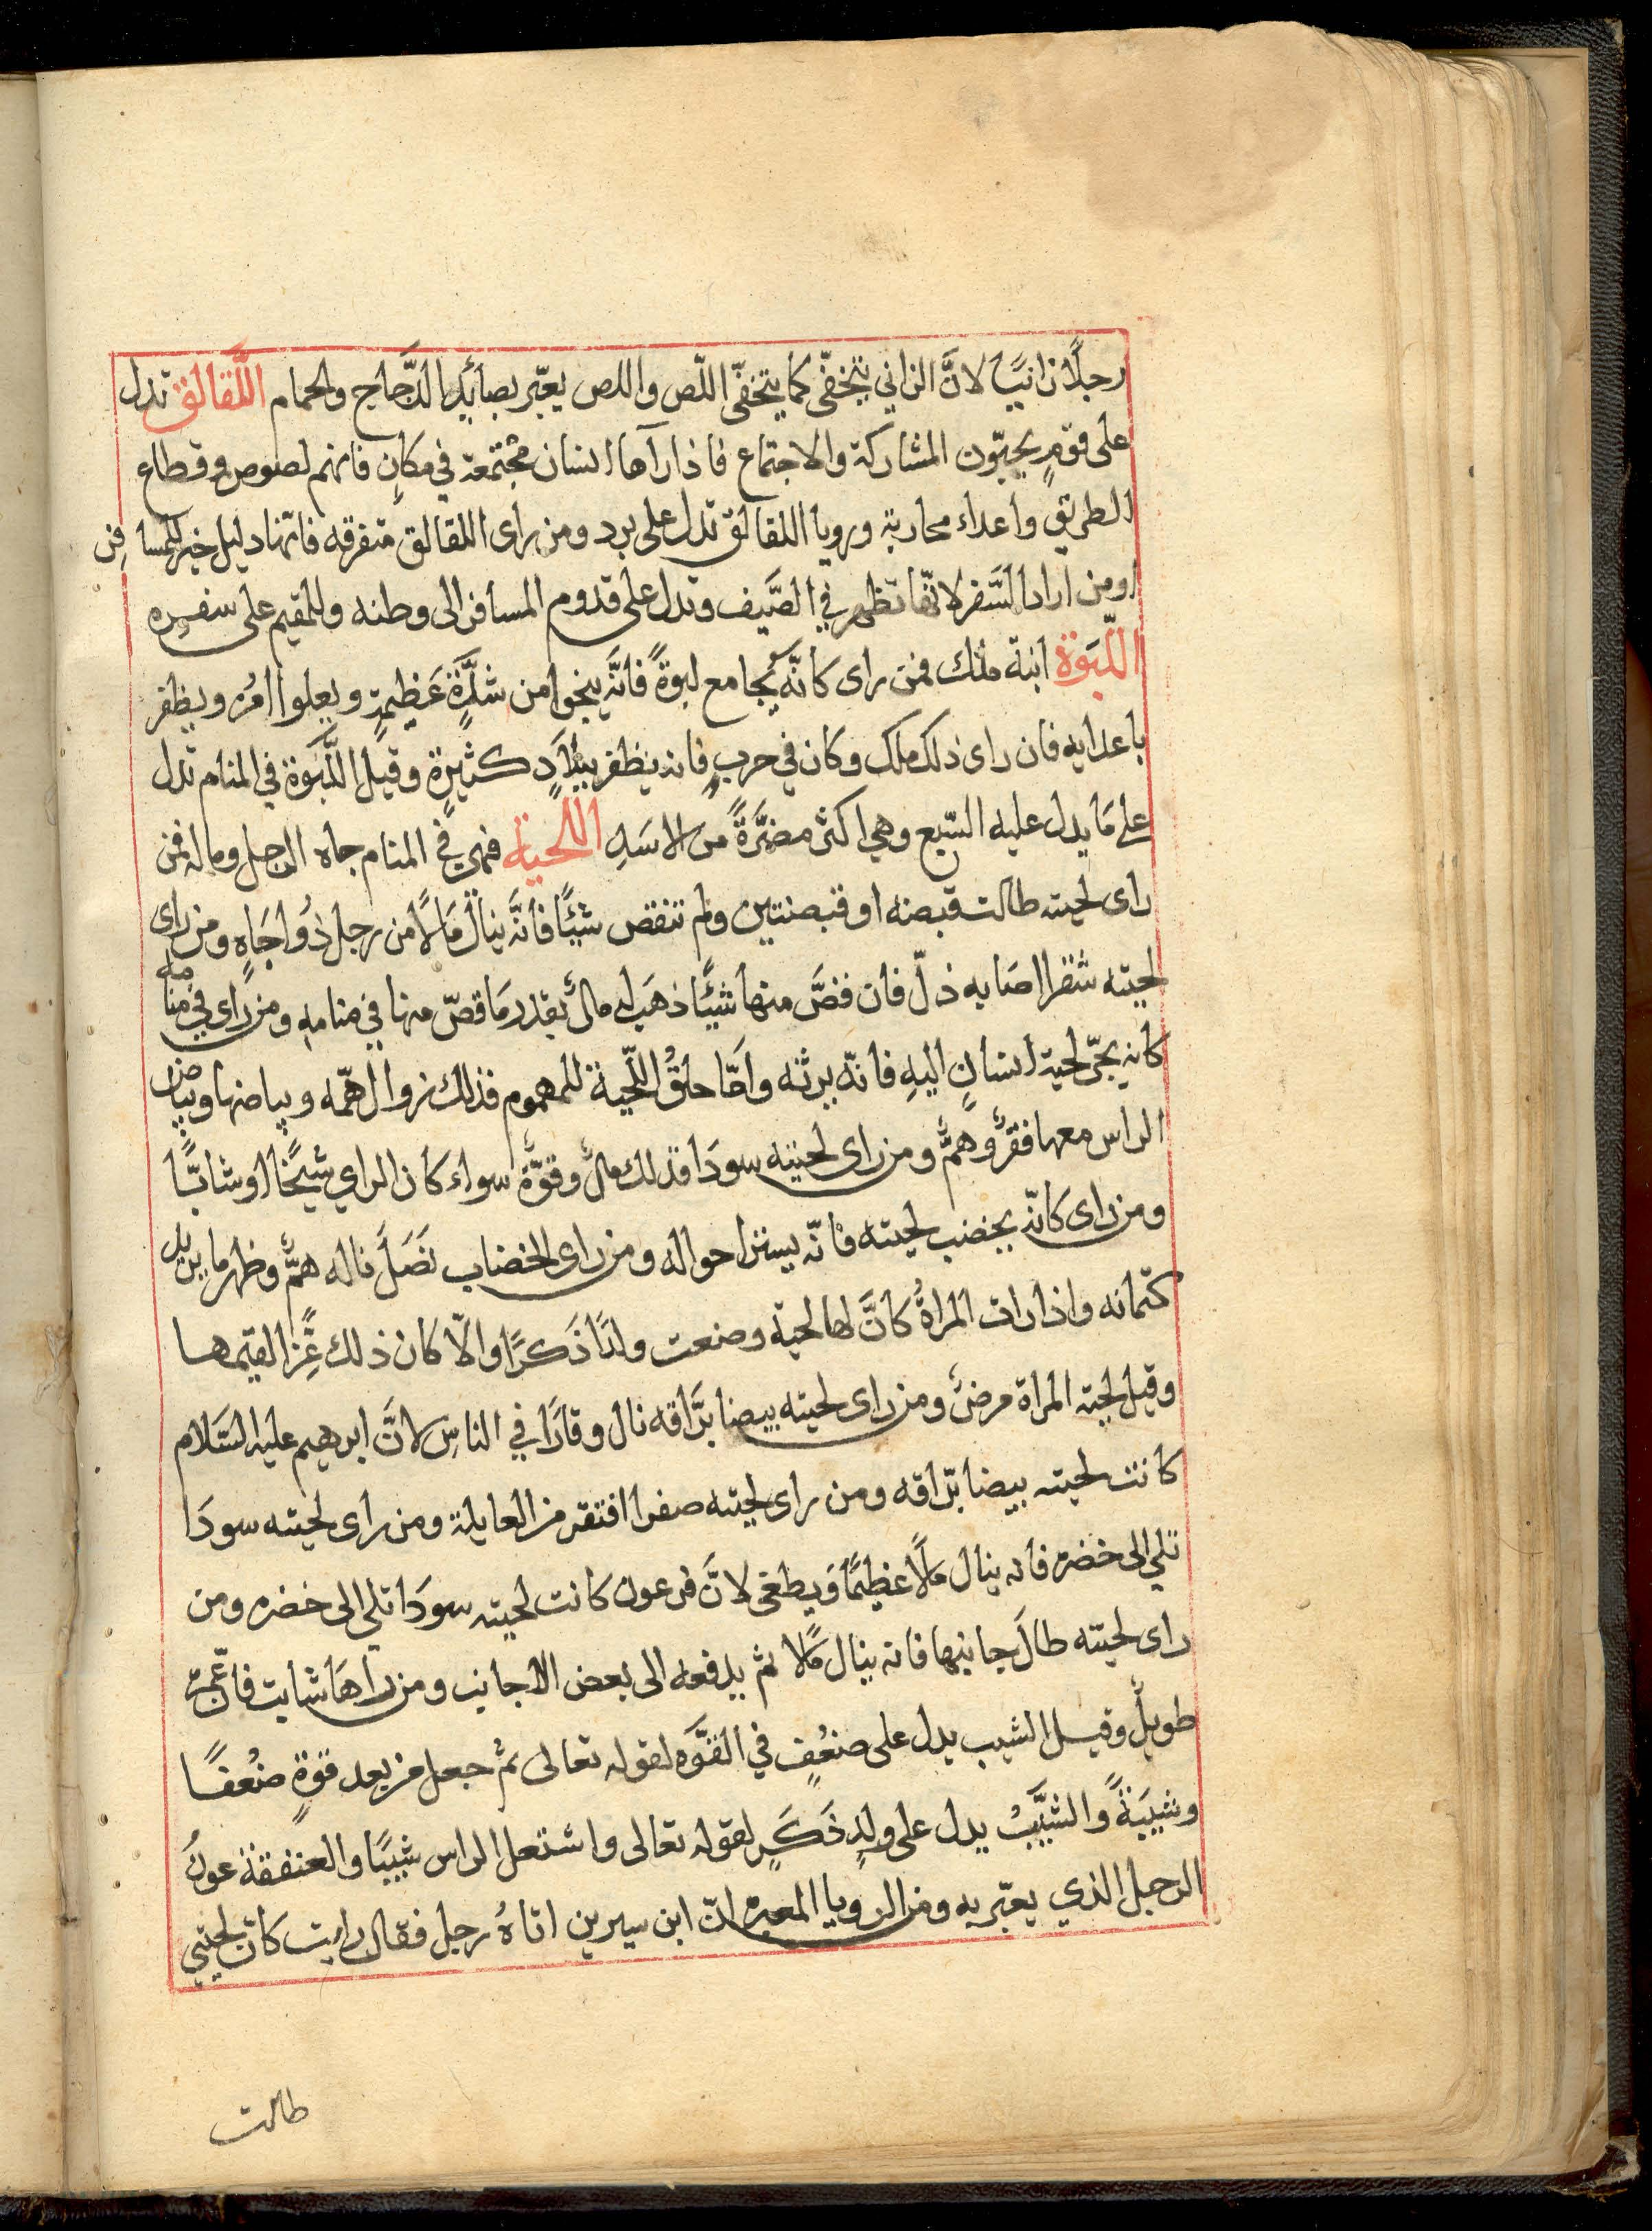 رجلًا زانيًا لانَّ الزاني يتخفّى كما يتخفّى اللّص واللص يعبّر بصائد الدَّجاج والحمام اللَّقالق تدل
على قومٍ يحبّون المشاركة والاجتماع فاذا رآها انسان مجتمعة في مكانٍ فانهم لصوص وقطاع
الطريق واعداء محاربة ورويا اللقالق تدل على برد ومن راى اللقالق متفرقه فانّها دليل خير للمسافر
اومن اراد السَّفر لانّها تظهر في الصَّيف وتدل على قدوم المسافر الى وطنه وللمقيم على سفره
اللَّبَوة ابنة ملك فمن راى كانّه يُجامع لبوةً فانَّه ينجوا من شدَّةٍ عَظيمةٍ ويعلوا امرُه ويظفر
باعدايه فان راى ذلك ملك وكان في حربٍ فانه يظفر ببلادٍ كثيرةٍ وقيل اللَّبَوة في المنام تدل
على مَا يدل عليه السّبع وهي اكثر مضرَّةً من الاسَدِ اللحية فهي في المنام جاه الرجل وماله فمن
راى لحيته طالت قبضه او قبضتين ولم تنقص شيًا فانَّه ينال مَالًا من رجل ذُوا جَاهٍ ومن راى
لحيته شقرا اصَابه ذلّ فان قصَّ منها شيًا ذهَب له مالٌ بقدر مَا قصّ منها في منامه ومن راى في منامه
كانه يجرّ لحية انسانٍ اليهِ فانّه يرثه وامَّا حلقُ اللّحية للمهموم فذلك زوال همّه وبياضها وبياض
الراس معها فقرٌ وهمٌّ ومن راى لحيته سودَا فذلك مالٌ وقوّةٌ سواء كان الراي شيخًا اوشابًّا
ومن راى كانّه يخضب لحيته فانّه يستر احواله ومن راى الخضاب نَصَلَ ناله همٌّ وظهر ما يريد
كتمانه واذا رات المراةُ كانَّ لها لحية وضعت ولدًا ذَكرًا والّا كان ذلك عِزًّا لقيمها
وقيل لحية المراة مرضٌ ومن راى لحيته بيضا برَّاقه نال وقارًا في الناس لانَّ ابرهيم عليه السَّلام
كانت لحيته بيضا برّاقه ومن راى لحيته صفرا افتقر من العايلة ومن راى لحيته سودَا
تلي الى خضره فانه ينال مَالًا عظيمًا وَيطغى لانَّ فرعون كانت لحيته سودَا تلي الى خضره ومن
راى لحيته طالَ جانبها فانه ينال مَالًا ثم يدفعه الى بعض الاجانب ومن راهَا شابت فانّ عمره
طويلٌ وقيل الشيب يدل على ضعُفٍ في القوَّه لقوله تعالى ثمُ جعل من بعد قوّةٍ ضعُفًا
وشيبَةً والشَّيبُ يدل على ولدٍ ذَكَرٍ لقوله تعالى واشتعل الراس شيبًا والعنفقة عونُ
الرجل الذي يعبّر به ومن الرويا المعبره انّ ابن سيرين اتاهُ رجل فقال رايت كانّ لحيتي
طالت